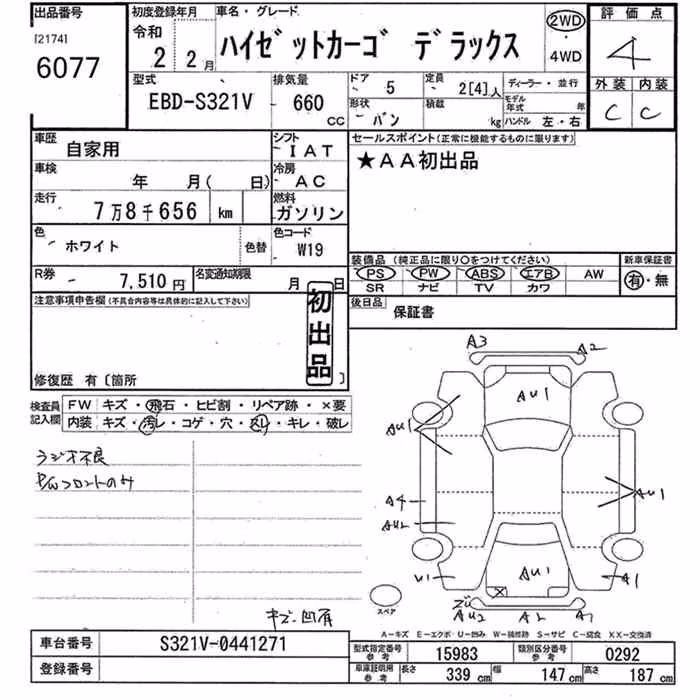 出品番号
[2174]
6077
初度登録年月
令和
2 2月
車名・グレード
ハイゼットカーゴ デラックス
2WD
・
4WD
評価点
4
外装 内装
C C
型式
EBD-S321V
排気量
660
CC
ドア
5
形状
バン
定員
2[4]人
積載
kg
ディーラー・並行
モデル年式 年
ハンドル 左・右
車歴
自家用
シフト
IAT
車検
年 月( 日)
冷房
AC
走行
7万8千656 km
燃料
ガソリン
色
ホワイト
色替
色コード
W19
R券
7,510円
名変通知期限
月 日
セールスポイント(正常に機能するものに限ります)
★AA初出品
装備品(純正品に限り〇をつけてください)
PS PW ABS エアB AW
SR ナビ TV カワ
新車保証書
有・無
後日品
保証書
注意事項申告欄(不具合内容等は具体的に記入して下さい)
初出品
修復歴 有〔箇所 〕
検査員記入欄
FW キズ・飛石・ヒビ割・リペア跡・×要
内装 キズ・汚レ・コゲ・穴・スレ・キレ・破レ
ラジオ不良
P/Wフロントのみ
キズ・凹有
A3 A2
AU1
AU1
AU1
A4
AU2
U1
AU1
A1
スペア
AU2 A2 A1
A－キズ E－エクボ U－凹み W－補修跡 S－サビ C－腐食 XX－交換済
車台番号
S321V-0441271
登録番号
型式指定番号
参考
15983
類別区分番号
参考
0292
車庫証明用
参考
長さ
339 cm
幅
147 cm
高さ
187 cm